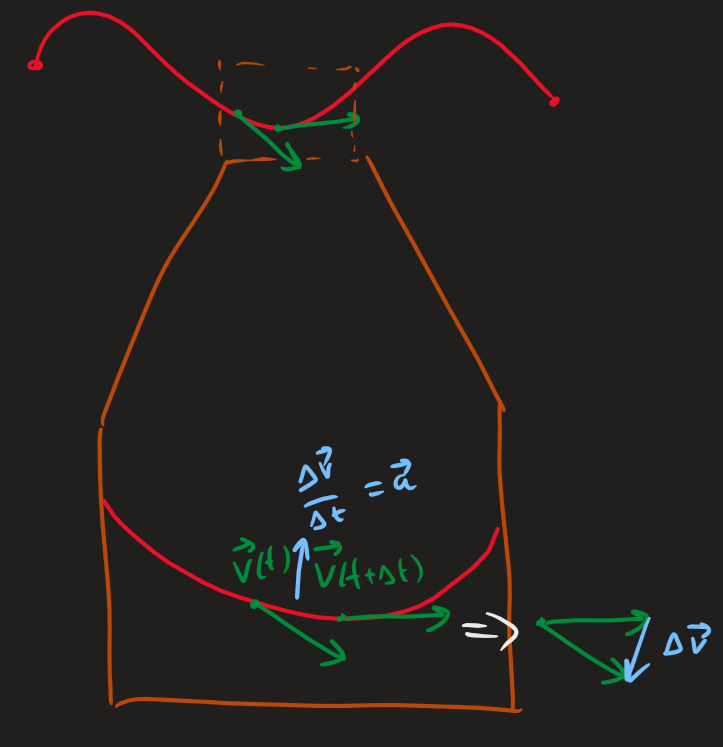 Δv⃗/Δt = a⃗
v⃗(t) v⃗(t+Δt)
=> Δv⃗